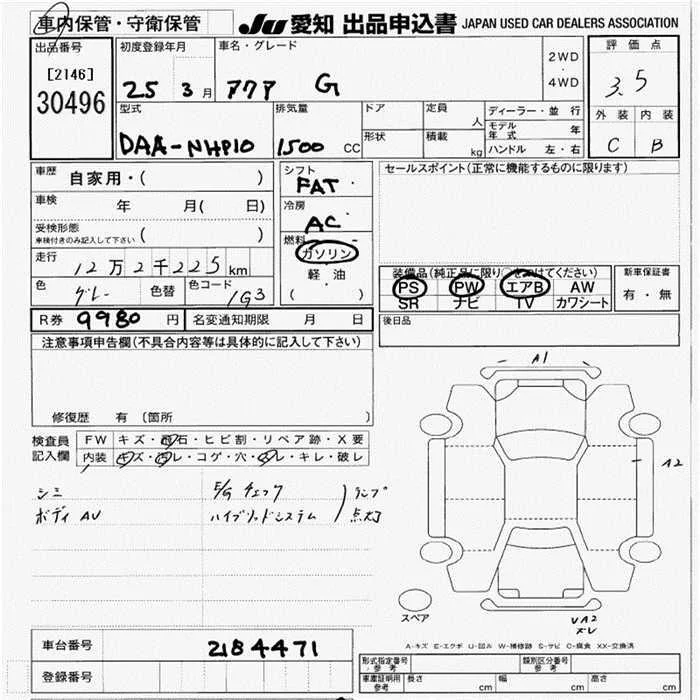 車内保管・守衛保管 JU 愛知 出品申込書 JAPAN USED CAR DEALERS ASSOCIATION
出品番号 初度登録年月 車名・グレード 2WD・4WD 評価点
[2146] 30496 25 3月 アクア G 3.5
型式 排気量 ドア 定員 人 ディーラー・並行 外装 内装
DAA-NHP10 1500 CC 形状 積載 kg モデル年式 年 C B
ハンドル 左・右
車歴 自家用・( ) シフト FAT セールスポイント(正常に機能するものに限ります)
車検 年 月( 日) 冷房 AC
受検形態 車検付きのみ記入して下さい ( ) 燃料 ガソリン
走行 12万2千225km 軽油
色 グレー 色替 色コード 1G3 ( )
装備品(純正品に限り○をつけてください) 新車保証書
PS PW エアB AW 有・無
SR ナビ TV カワシート
R券 9980円 名変通知期限 月 日 後日品
注意事項申告欄(不具合内容等は具体的に記入して下さい)
修復歴 有 〔箇所 〕
検査員記入欄 FW キズ・飛石・ヒビ割・リペア跡・X要
内装 キズ・汚レ・コゲ・穴・スレ・キレ・破レ
シミ E/Gチェック ランプ
ボディ AU ハイブリッドシステム 点灯
A1
A2
スペア
UA2
A-キズ E-エクボ U-凹ル W-補修跡 S-サビ C-腐食 XX-交換済
車台番号 2184471
登録番号
型式指定番号 参考 類別区分番号 参考
車庫証明用 参考 長さ cm 幅 cm 高さ cm